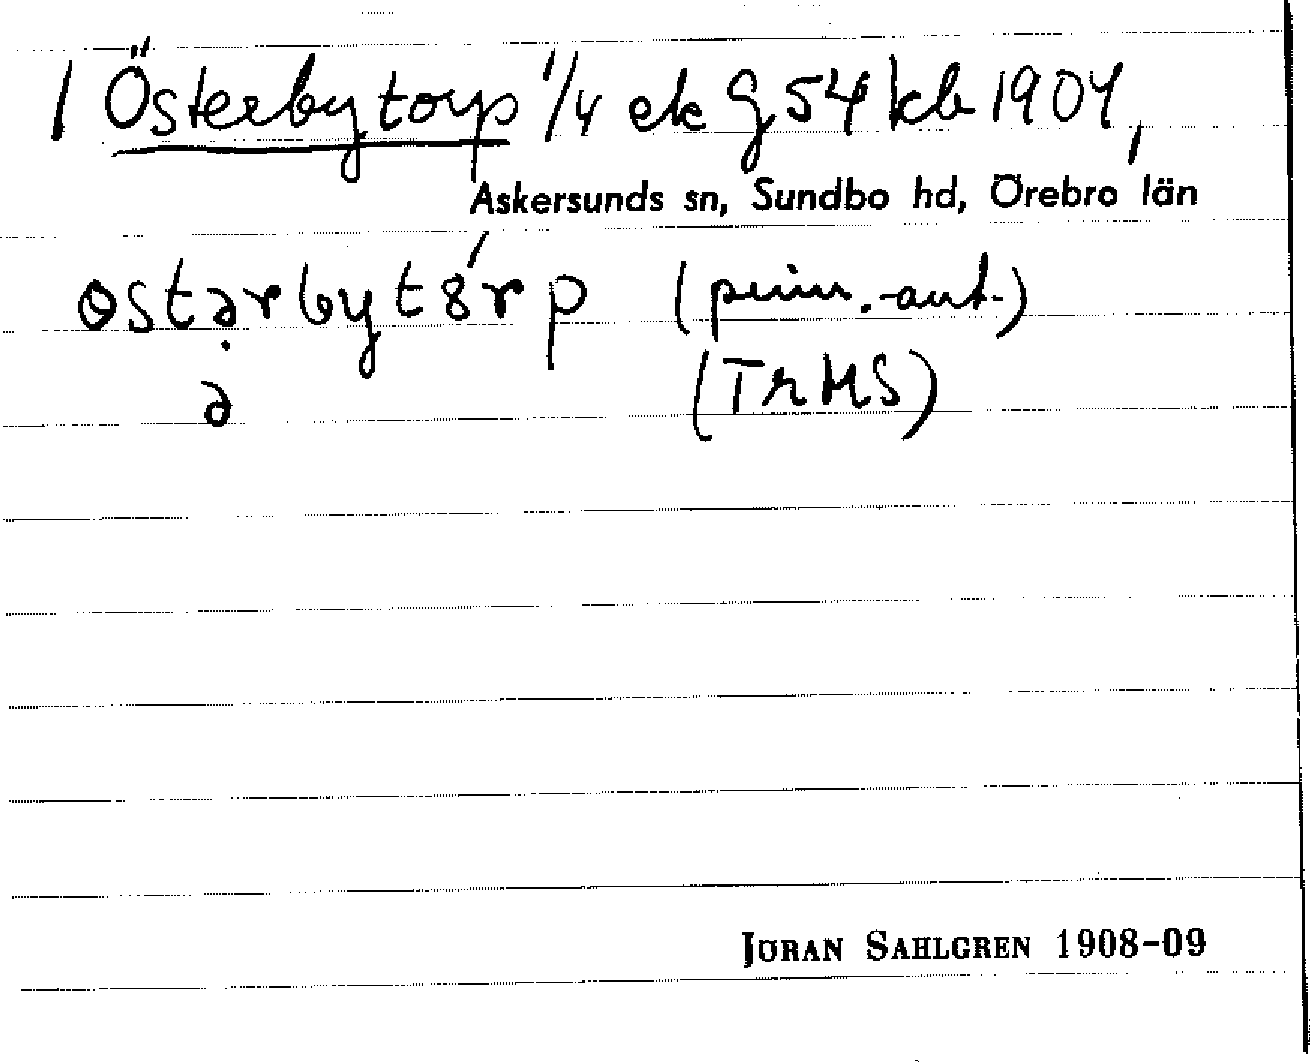 1 Österbytorp 1/4 ek G 54 kb 1904,
Askersunds sn, Sundbo hd, Örebro län
ɵstərbytȣ́rp (prim.-ant.)
ə (TRMS)
JÖRAN SAHLGREN 1908-09